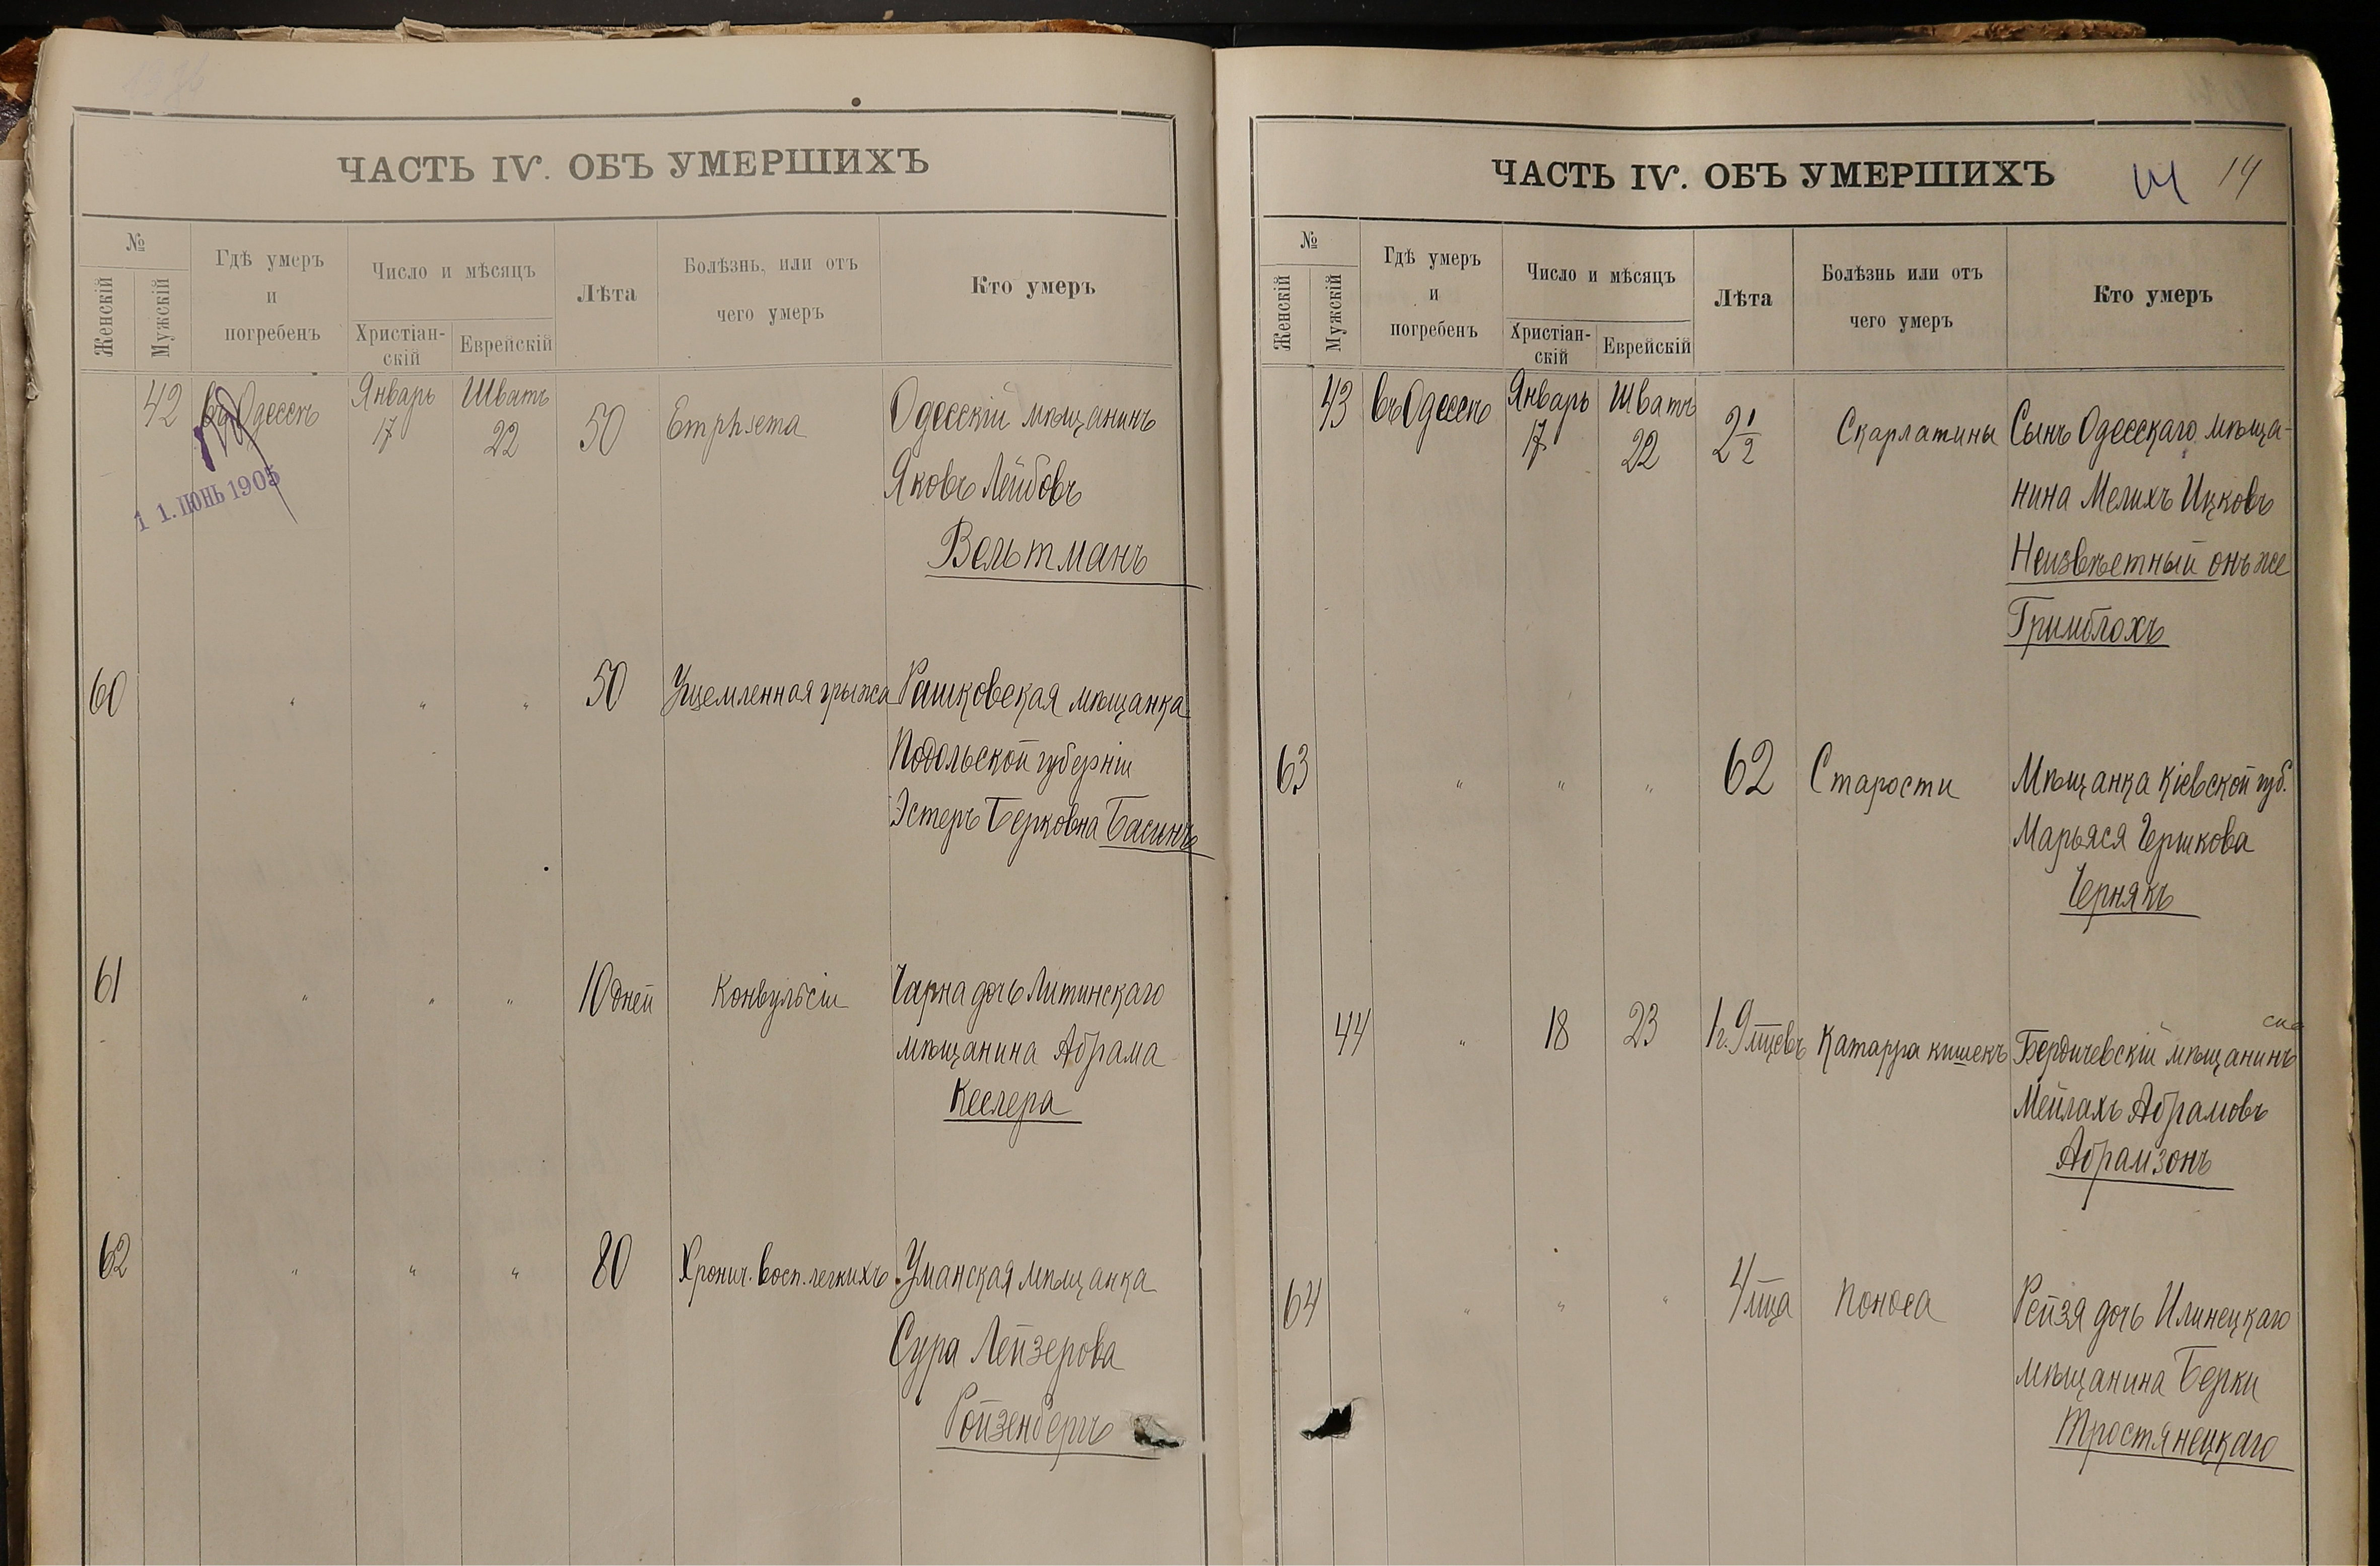 ЧАСТЬ IV. ОБЪ УМЕРШИХЪ
№
Женскій
Мужскій
Гдѣ умеръ
и
погребенъ
Число и мѣсяцъ
Христіан-
скій
Еврейскій
Лѣта
Болѣзнь, или отъ
чего умеръ
Кто умеръ
42 въ Одессѣ Январь 17 Шватъ 22 50 Emphsema Одесскій мѣщанинъ
Яковъ Лейбовъ
Вельтманъ
11. ІЮНЬ 1905
60 " " " 50 Ущемленная грыжа Рашковская мѣщанка
Подольской губерніи
Эстеръ Берковна Басинъ
61 " " " 10 дней Конвульсіи Чарна дочь Литинскаго
мѣщанина Абрама
Кеслера
62 " " " 80 Хронич. восп. легкихъ Уманская мѣщанка
Сура Лейзерова
Ройзенбергъ
ЧАСТЬ IV. ОБЪ УМЕРШИХЪ
14
№
Женскій
Мужскій
Гдѣ умеръ
и
погребенъ
Число и мѣсяцъ
Христіан-
скій
Еврейскій
Лѣта
Болѣзнь или отъ
чего умеръ
Кто умеръ
43 въ Одессѣ Январь 17 Шватъ 22 2 1/2 Скарлатины Сынъ Одесскаго мѣща-
нина Мелихъ Ицковъ
Неизвѣстный онъ же
Гримблохъ
63 " " " 62 Старости Мѣщанка Кіевской губ.
Марьяся Гершкова
Чернякъ
44 " 18 23 1 г. 9 мцевъ Катарра кишекъ Бердичевскій мѣщанинъ
Мейлахъ Абрамовъ
Абрамзонъ
64 " " " 4 мца Поноса Рейзя дочь Илинецкаго
мѣщанина Берки
Тростянецкаго